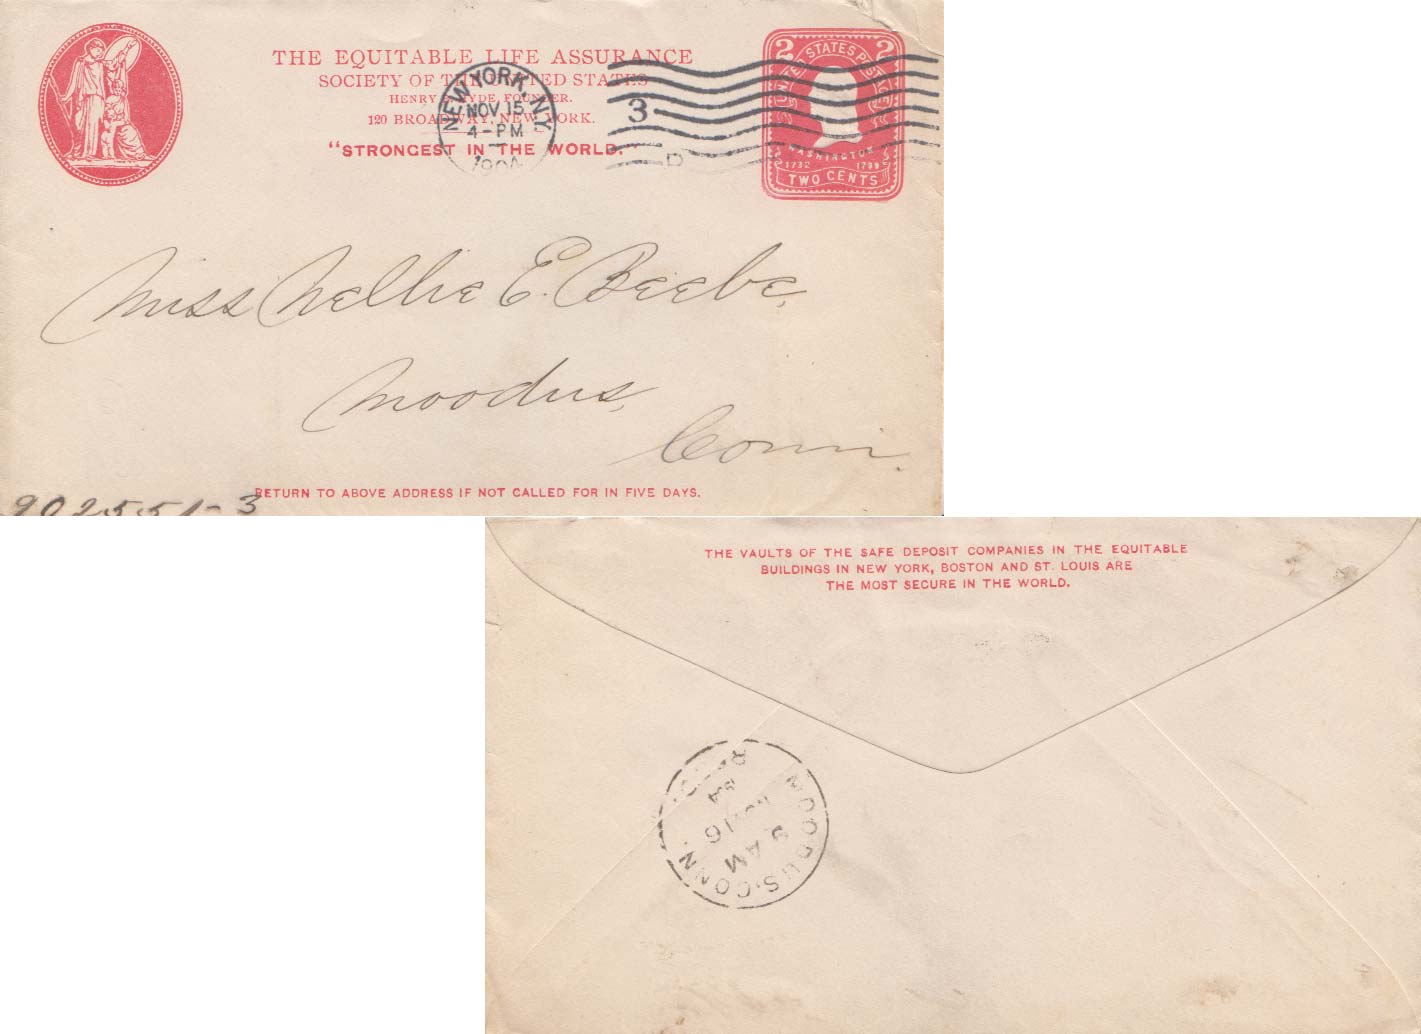 THE EQUITABLE LIFE ASSURANCE
SOCIETY OF THE UNITED STATES
HENRY B. HYDE, FOUNDER.
120 BROADWAY, NEW YORK.
"STRONGEST IN THE WORLD."
NEW YORK, N.Y.
NOV 15
4-PM
1904
3
D
2 UNITED STATES POSTAGE 2
WASHINGTON
1732 1799
TWO CENTS
Miss Nellie E. Beebe,
Moodus,
Conn.
RETURN TO ABOVE ADDRESS IF NOT CALLED FOR IN FIVE DAYS.
902551-3
THE VAULTS OF THE SAFE DEPOSIT COMPANIES IN THE EQUITABLE
BUILDINGS IN NEW YORK, BOSTON AND ST. LOUIS ARE
THE MOST SECURE IN THE WORLD.
MOODUS, CONN.
16
9 AM